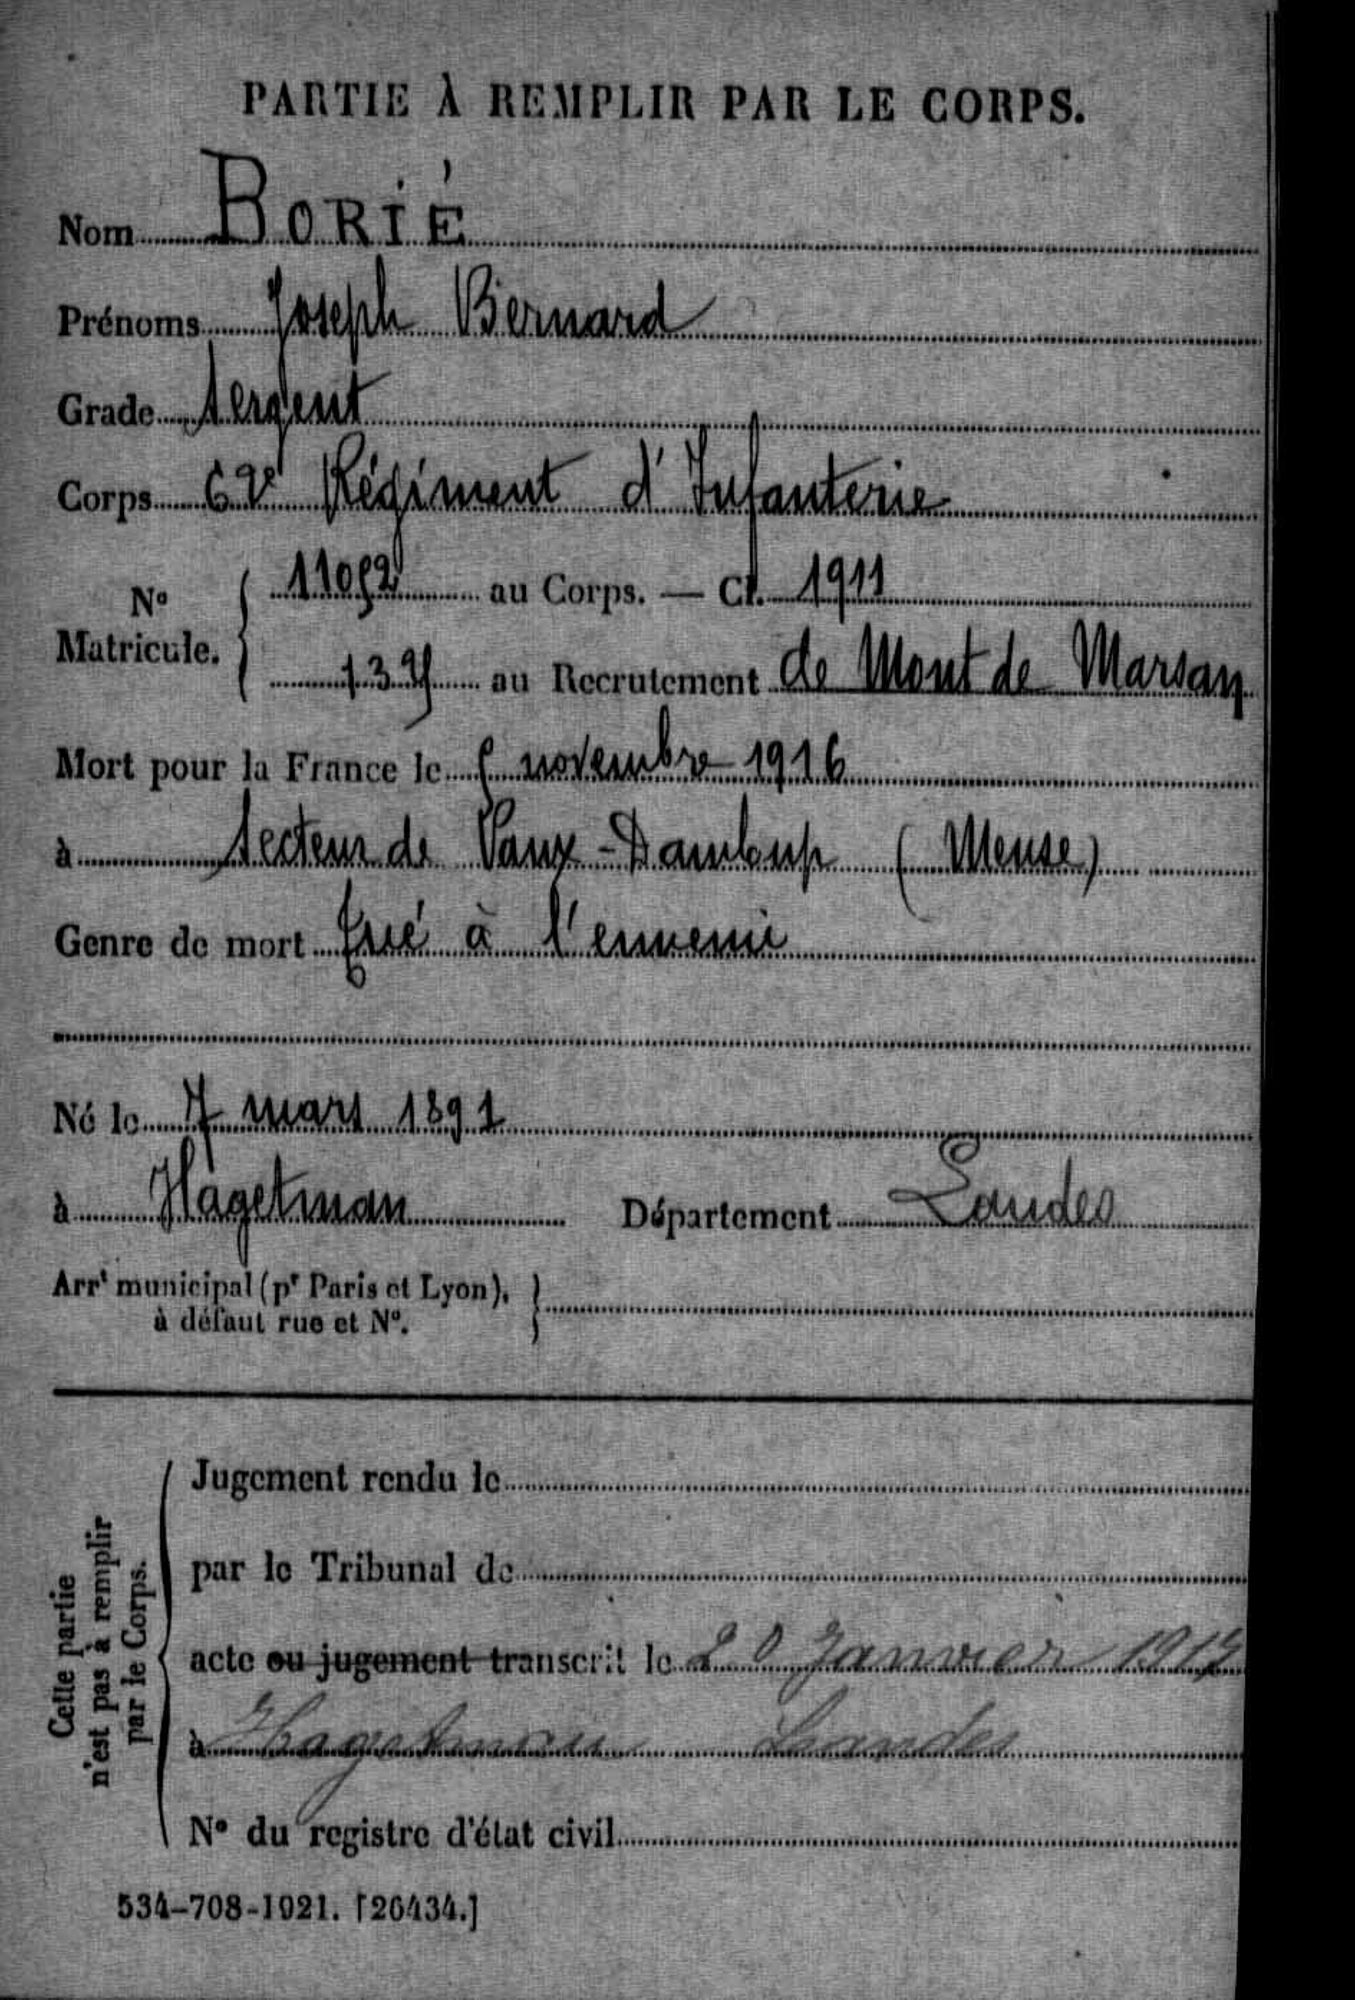 PARTIE À REMPLIR PAR LE CORPS.
Nom BORIÉ
Prénoms Joseph Bernard
Grade Sergent
Corps 62e Régiment d'Infanterie
N° Matricule. 11052 au Corps. — Cl. 1911
au Recrutement de Mont de Marsan
Mort pour la France le 5 novembre 1916
à Secteur de Vaux-Damloup (Meuse)
Genre de mort Tué à l'ennemi
Né le 7 mars 1891
à Hagetman Département Landes
Arrt municipal (pr Paris et Lyon),
à défaut rue et N°.
Cette partie
n'est pas à remplir
par le Corps.
Jugement rendu le
par le Tribunal de
acte ou jugement transcrit le 20 Janvier 1917
à Hagetmau Landes
N° du registre d'état civil
534-708-1921. [26434.]